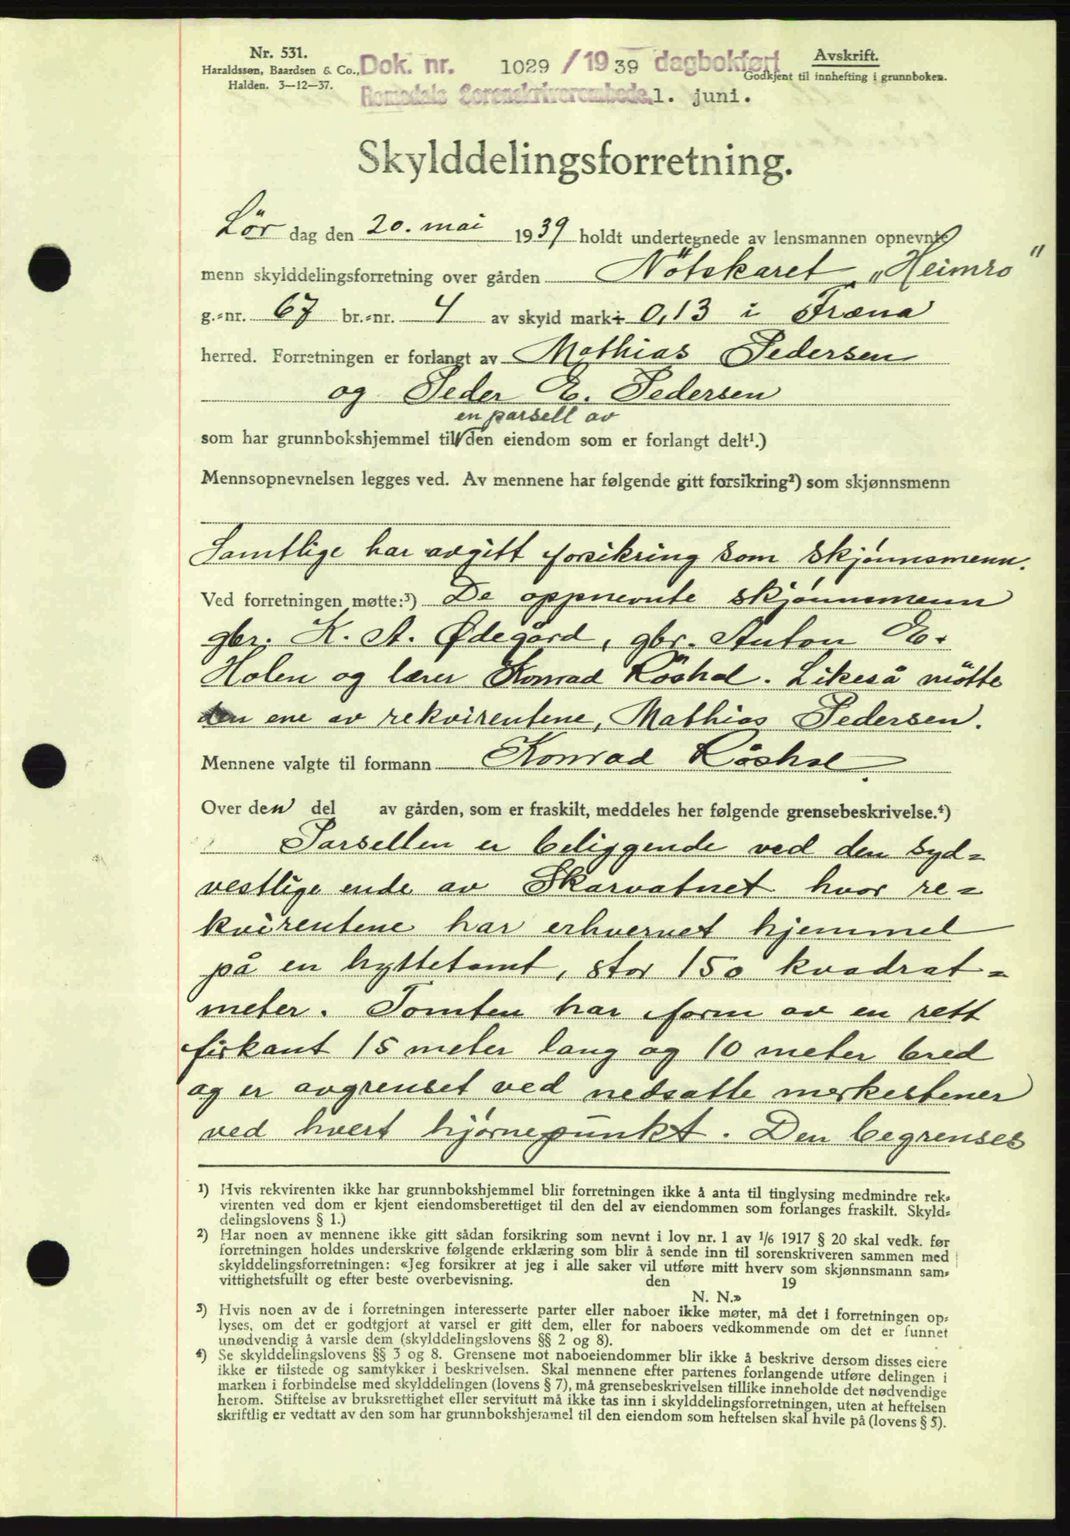 Nr. 531.
Haraldssen, Baardsen & Co.,
Halden. 3—12—37.
Dok. nr. 1029 / 1939 dagbokført
Romsdals Sorenskriverembede, 1. juni.
Avskrift.
Godkjent til innhefting i grunnboken.
Skylddelingsforretning.
Lør dag den 20. mai 1939 holdt undertegnede av lensmannen opnevnte
menn skylddelingsforretning over gården Nötskaret „Heimro"
g.-nr. 67 br.-nr. 4 av skyld mark 0,13 i Fræna
herred. Forretningen er forlangt av Mathias Pedersen
og Peder E. Pedersen
en parsell av
som har grunnbokshjemmel til den eiendom som er forlangt delt¹.)
Mennsopnevnelsen legges ved. Av mennene har følgende gitt forsikring²) som skjønnsmenn
Samtlige har avgitt forsikring som skjónnsmenn.
Ved forretningen møtte:³) De oppnevnte skjónnsmenn
gbr. K. A. Ødegård, gbr. Anton E.
Holen og lærer Konrad Röshol. Likeså mötte
den ene av rekvirentene, Mathias Pedersen.
Mennene valgte til formann Konrad Röshol.
Over den del av gården, som er fraskilt, meddeles her følgende grensebeskrivelse.⁴)
Parsellen er beliggende ved den syd=
vestlige ende av Skarvatnet hvor re=
kvirentene har erhvervet hjemmel
på en hyttetomt, stor 150 kvadrat=
meter. Tomten har form av en rett
firkant 15 meter lang og 10 meter bred
og er avgrenset ved nedsatte merkestener
ved hvert hjørnepunkt. Den begrenses
¹) Hvis rekvirenten ikke har grunnbokshjemmel blir forretningen ikke å anta til tinglysing medmindre rek-
virenten ved dom er kjent eiendomsberettiget til den del av eiendommen som forlanges fraskilt. Skyld-
delingslovens § 1.)
²) Har noen av mennene ikke gitt sådan forsikring som nevnt i lov nr. 1 av 1/6 1917 § 20 skal vedk. før
forretningen holdes underskrive følgende erklæring som blir å sende inn til sorenskriveren sammen med
skylddelingsforretningen: «Jeg forsikrer at jeg i alle saker vil utføre mitt hverv som skjønnsmann sam-
vittighetsfullt og efter beste overbevisning. den 19
N. N.»
³) Hvis noen av de i forretningen interesserte parter eller naboer ikke møter, må det i forretningen op-
lyses, om det er godtgjort at varsel er gitt dem, eller for naboers vedkommende om det er funnet
unødvendig å varsle dem (skylddelingslovens §§ 2 og 8).
⁴) Se skylddelingslovens §§ 3 og 8. Grensene mot naboeiendommer blir ikke å beskrive dersom disses eiere
ikke er tilstede og samtykker i beskrivelsen. Skal mennene efter partenes forlangende utføre delingen i
marken i forbindelse med skylddelingen (lovens § 7), må grensebeskrivelsen tillike inneholde det nødvendige
herom. Stiftelse av bruksrettighet eller servitutt må ikke tas inn i skylddelingsforretningen, uten at heftelsen
skriftlig er vedtatt av den som har grunnbokshjemmel til den eiendom som heftelsen skal hvile på (lovens § 5).